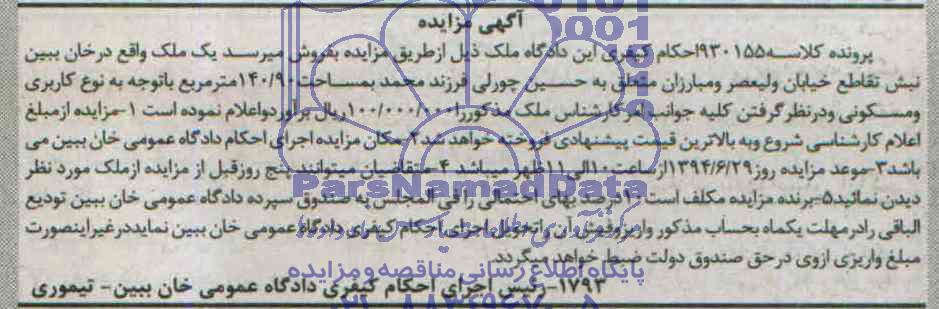 آگهی مزایده
پرونده کلاسه ۹۳۰۱۵۵احکام کیفری این دادگاه ملک ذیل ازطریق مزایده بفروش میرسد یک ملک واقع درخان ببین
نبش تقاطع خیابان ولیعصر ومبارزان متعلق به حسین چورلی فرزند محمد بمساحت۱۴۰/۹۰مترمربع باتوجه به نوع کاربری
ومسکونی ودرنظر گرفتن کلیه جوانب امرکارشناس ملک مذکوررا۱۰۰/۰۰۰/۰۰۰ریال برآوردواعلام نموده است ۱-مزایده ازمبلغ
اعلام کارشناسی شروع وبه بالاترین قیمت پیشنهادی فروخته خواهد شد۲-مکان مزایده اجرای احکام دادگاه عمومی خان ببین می
باشد۳-موعد مزایده روز۱۳۹۴/۶/۲۹ازساعت۱۰الی۱۱ظهر میباشد ۴-متقاضیان میتوانند پنج روزقبل از مزایده ازملک مورد نظر
دیدن نمائید۵-برنده مزایده مکلف است۱۰درصد بهای احتمالی رافی المجلس به صندوق سپرده دادگاه عمومی خان ببین تودیع
الباقی رادرمهلت یکماه بحساب مذکور واریزوفیش آن راتحویل اجرای احکام کیفری دادگاه عمومی خان ببین نمایددرغیراینصورت
مبلغ واریزی ازوی درحق صندوق دولت ضبط خواهد میگردد.
۱۷۹۳-رئیس اجرای احکام کیفری دادگاه عمومی خان ببین- تیموری
ParsNamadData
پایگاه اطلاع رسانی مناقصه و مزایده